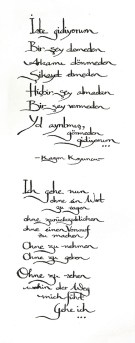 İşte gidiyorum
Bir şey demeden
Arkamı dönmeden
Şikayet etmeden
Hiçbir şey almadan
Bir şey vermeden
Yol ayrılmış,
görmeden
gidiyorum ...
- Kazım Koyuncu -
Ich gehe nun
ohne ein Wort
zu sagen
ohne zurückzublicken
ohne einen Vorwurf
zu machen
Ohne zu nehmen
Ohne zu geben
Ohne zu sehen
wohin der Weg
mich führt
Gehe ich
...